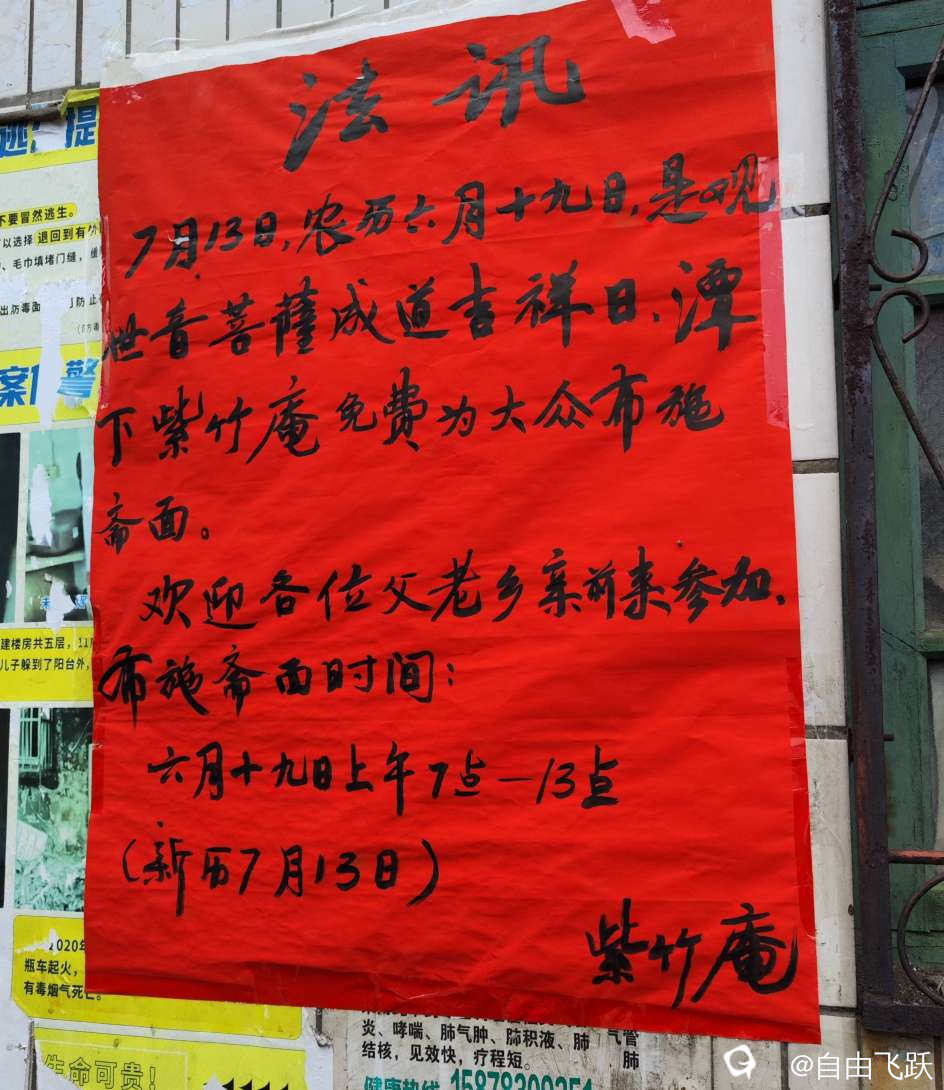 法讯
7月13日,农历六月十九日,是观
世音菩薩成道吉祥日,潭
下紫竹庵免费为大众布施
斋面。
欢迎各位父老乡亲前来参加,
布施斋面时间:
六月十九日上午7点—13点
(新历7月13日)
紫竹庵
提
不要冒然逃生。
以选择 退回到有
、毛巾填堵门缝,
出防毒面
防止
案
警
建楼房共五层,11
儿子躲到了阳台外,
2020年
瓶车起火,
有毒烟气死亡。
生命可贵!
炎、哮喘、肺气肿、肺积液、肺
气管
结核,见效快,疗程短。
肺
健康热线
@自由飞跃